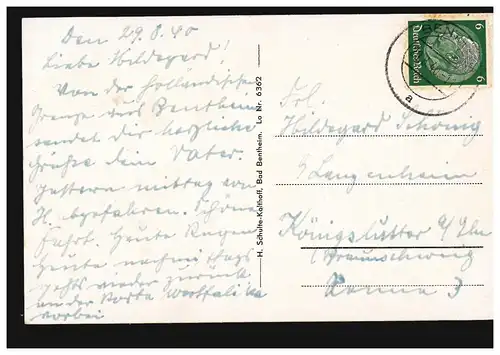 Den 29.8.40
Liebe Hildegard!
Von der Holländischen
Grenze aus Bentheim
sendet dir herzliche
Grüße dein Vater.
Gestern mittag von
H. abgefahren. Schöne
Fahrt. Heute Regen
Heute nachmittags
gehts wieder zurück
an der Porta Westfalika
vorbei
H. Schulte-Kolthoff, Bad Bentheim. Lo Nr. 6362
6 6
Deutsches Reich
a
Frl.
Hildegard
Königslutter a/Elm
Braunschweig